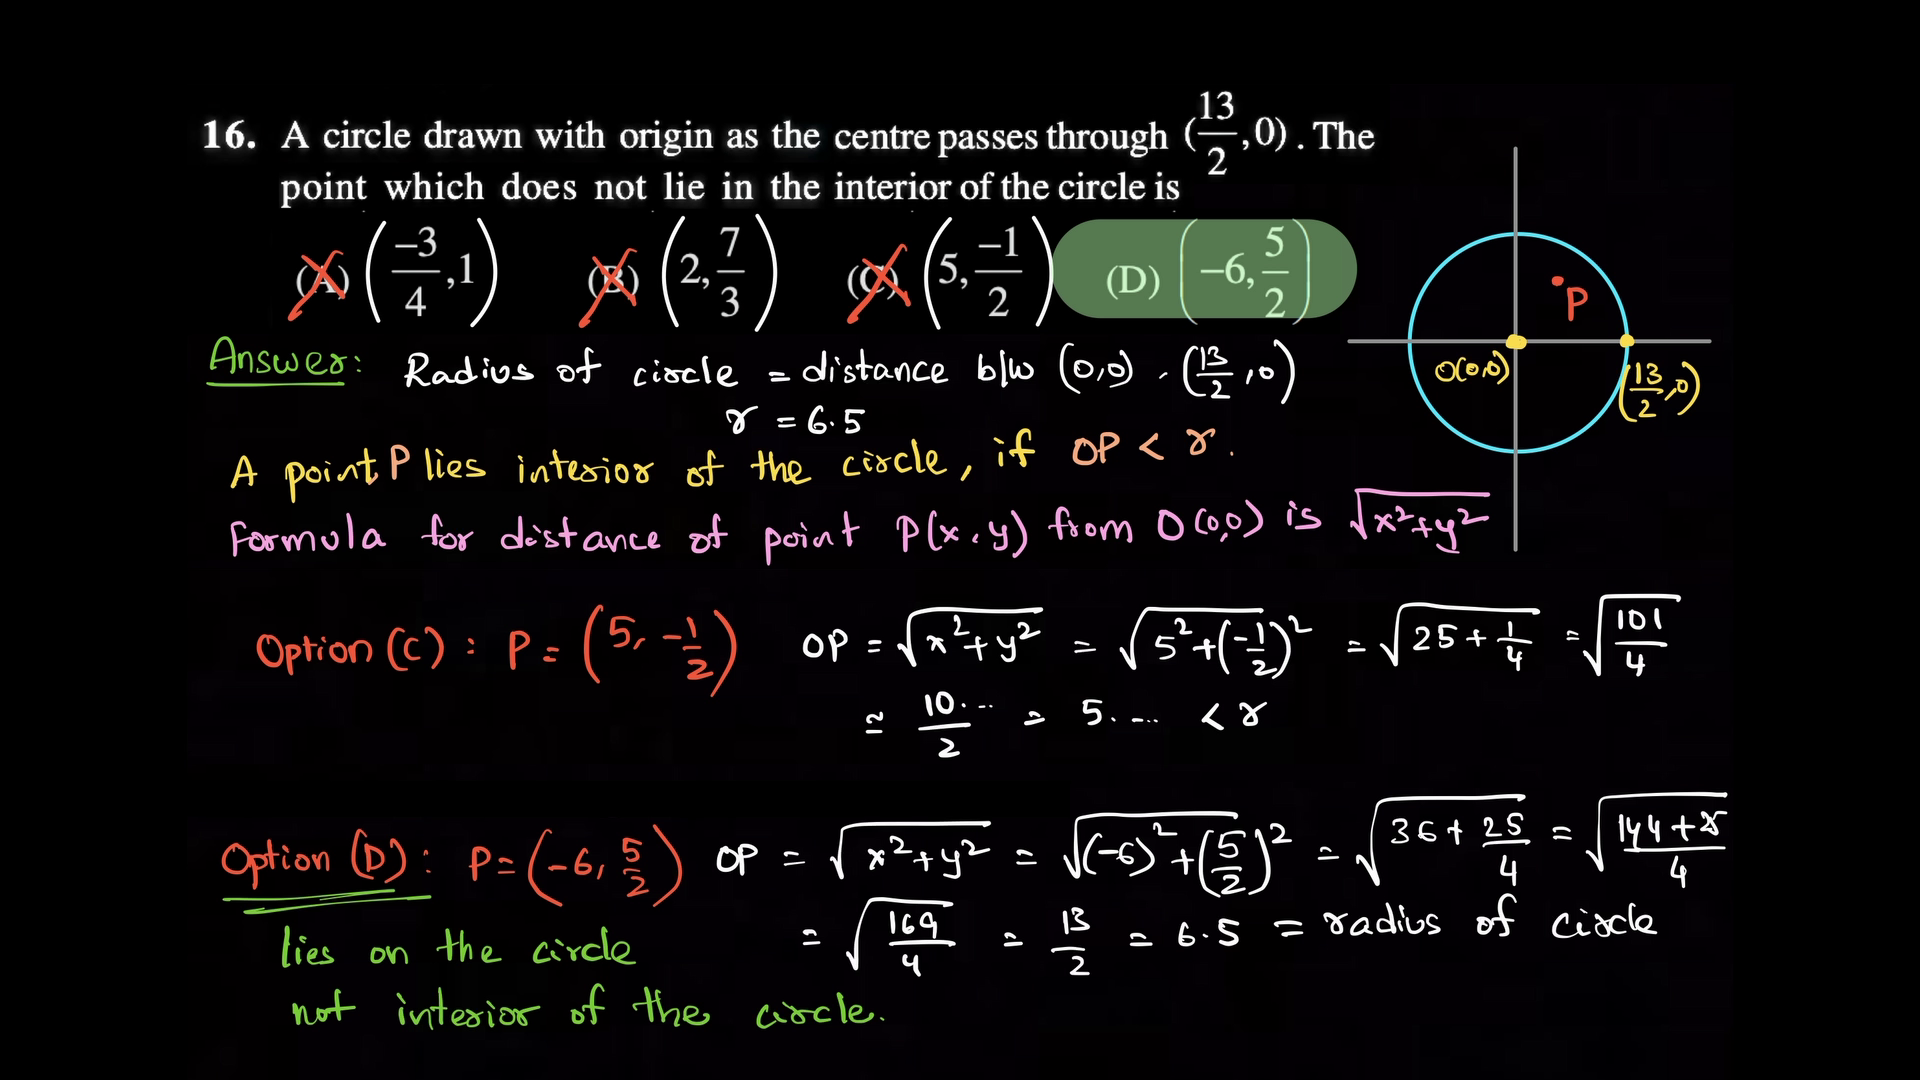 16. A circle drawn with origin as the centre passes through (13/2, 0). The
point which does not lie in the interior of the circle is
(A) (-3/4, 1) (B) (2, 7/3) (C) (5, -1/2) (D) (-6, 5/2)
P
O(0,0)
(13/2, 0)
Answer: Radius of circle = distance b/w (0,0) , (13/2, 0)
r = 6.5
A point P lies interior of the circle, if OP < r.
Formula for distance of point P(x,y) from O(0,0) is √(x²+y²)
Option (C) : P = (5, -1/2) OP = √(x²+y²) = √(5²+(-1/2)²) = √(25+1/4) = √(101/4)
≃ 10.../2 = 5.... < r
Option (D) : P = (-6, 5/2) OP = √(x²+y²) = √((-6)²+(5/2)²) = √(36+25/4) = √((144+25)/4)
= √(169/4) = 13/2 = 6.5 = radius of circle
lies on the circle
not interior of the circle.